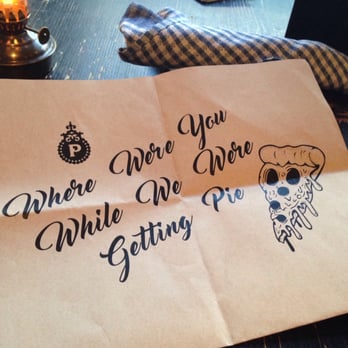 P
Where Were You
While We Were
Getting Pie